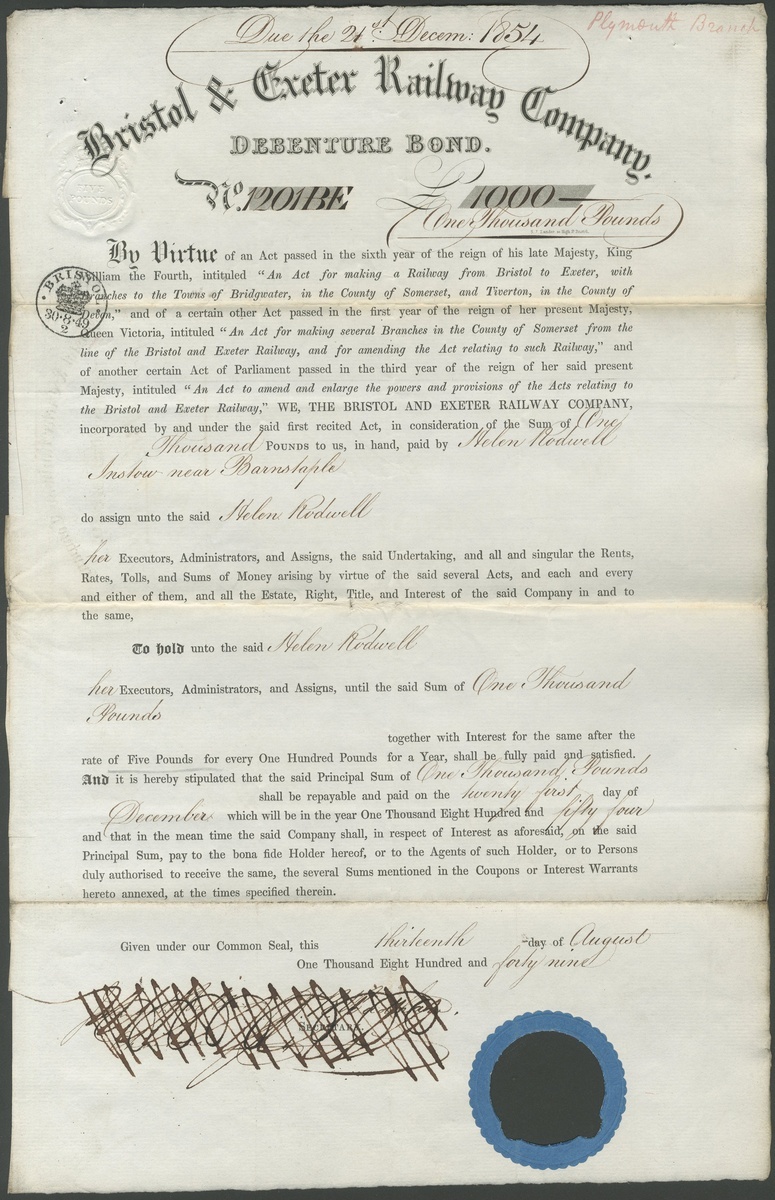 Due the 21st Decem: 1854
Plymouth Branch
Bristol & Exeter Railway Company.
DEBENTURE BOND.
FIVE
POUNDS
No. 1201BE £ 1000
One Thousand Pounds
By Virtue of an Act passed in the sixth year of the reign of his late Majesty, King
William the Fourth, intituled “An Act for making a Railway from Bristol to Exeter, with
Branches to the Towns of Bridgwater, in the County of Somerset, and Tiverton, in the County of
Devon,” and of a certain other Act passed in the first year of the reign of her present Majesty,
Queen Victoria, intituled “An Act for making several Branches in the County of Somerset from the
line of the Bristol and Exeter Railway, and for amending the Act relating to such Railway,” and
of another certain Act of Parliament passed in the third year of the reign of her said present
Majesty, intituled “An Act to amend and enlarge the powers and provisions of the Acts relating to
the Bristol and Exeter Railway,” WE, THE BRISTOL AND EXETER RAILWAY COMPANY,
incorporated by and under the said first recited Act, in consideration of the Sum of One
Thousand POUNDS to us, in hand, paid by Helen Rodwell
Instow near Barnstaple
BRISTOL
30·8·49
2
do assign unto the said Helen Rodwell
her Executors, Administrators, and Assigns, the said Undertaking, and all and singular the Rents,
Rates, Tolls, and Sums of Money arising by virtue of the said several Acts, and each and every
and either of them, and all the Estate, Right, Title, and Interest of the said Company in and to
the same,
To hold unto the said Helen Rodwell
her Executors, Administrators, and Assigns, until the said Sum of One Thousand
Pounds
together with Interest for the same after the
rate of Five Pounds for every One Hundred Pounds for a Year, shall be fully paid and satisfied.
And it is hereby stipulated that the said Principal Sum of One Thousand Pounds
shall be repayable and paid on the twenty first day of
December which will be in the year One Thousand Eight Hundred and fifty four
and that in the mean time the said Company shall, in respect of Interest as aforesaid, on the said
Principal Sum, pay to the bona fide Holder hereof, or to the Agents of such Holder, or to Persons
duly authorised to receive the same, the several Sums mentioned in the Coupons or Interest Warrants
hereto annexed, at the times specified therein.
Given under our Common Seal, this thirteenth day of August
One Thousand Eight Hundred and forty nine
SECRETARY.